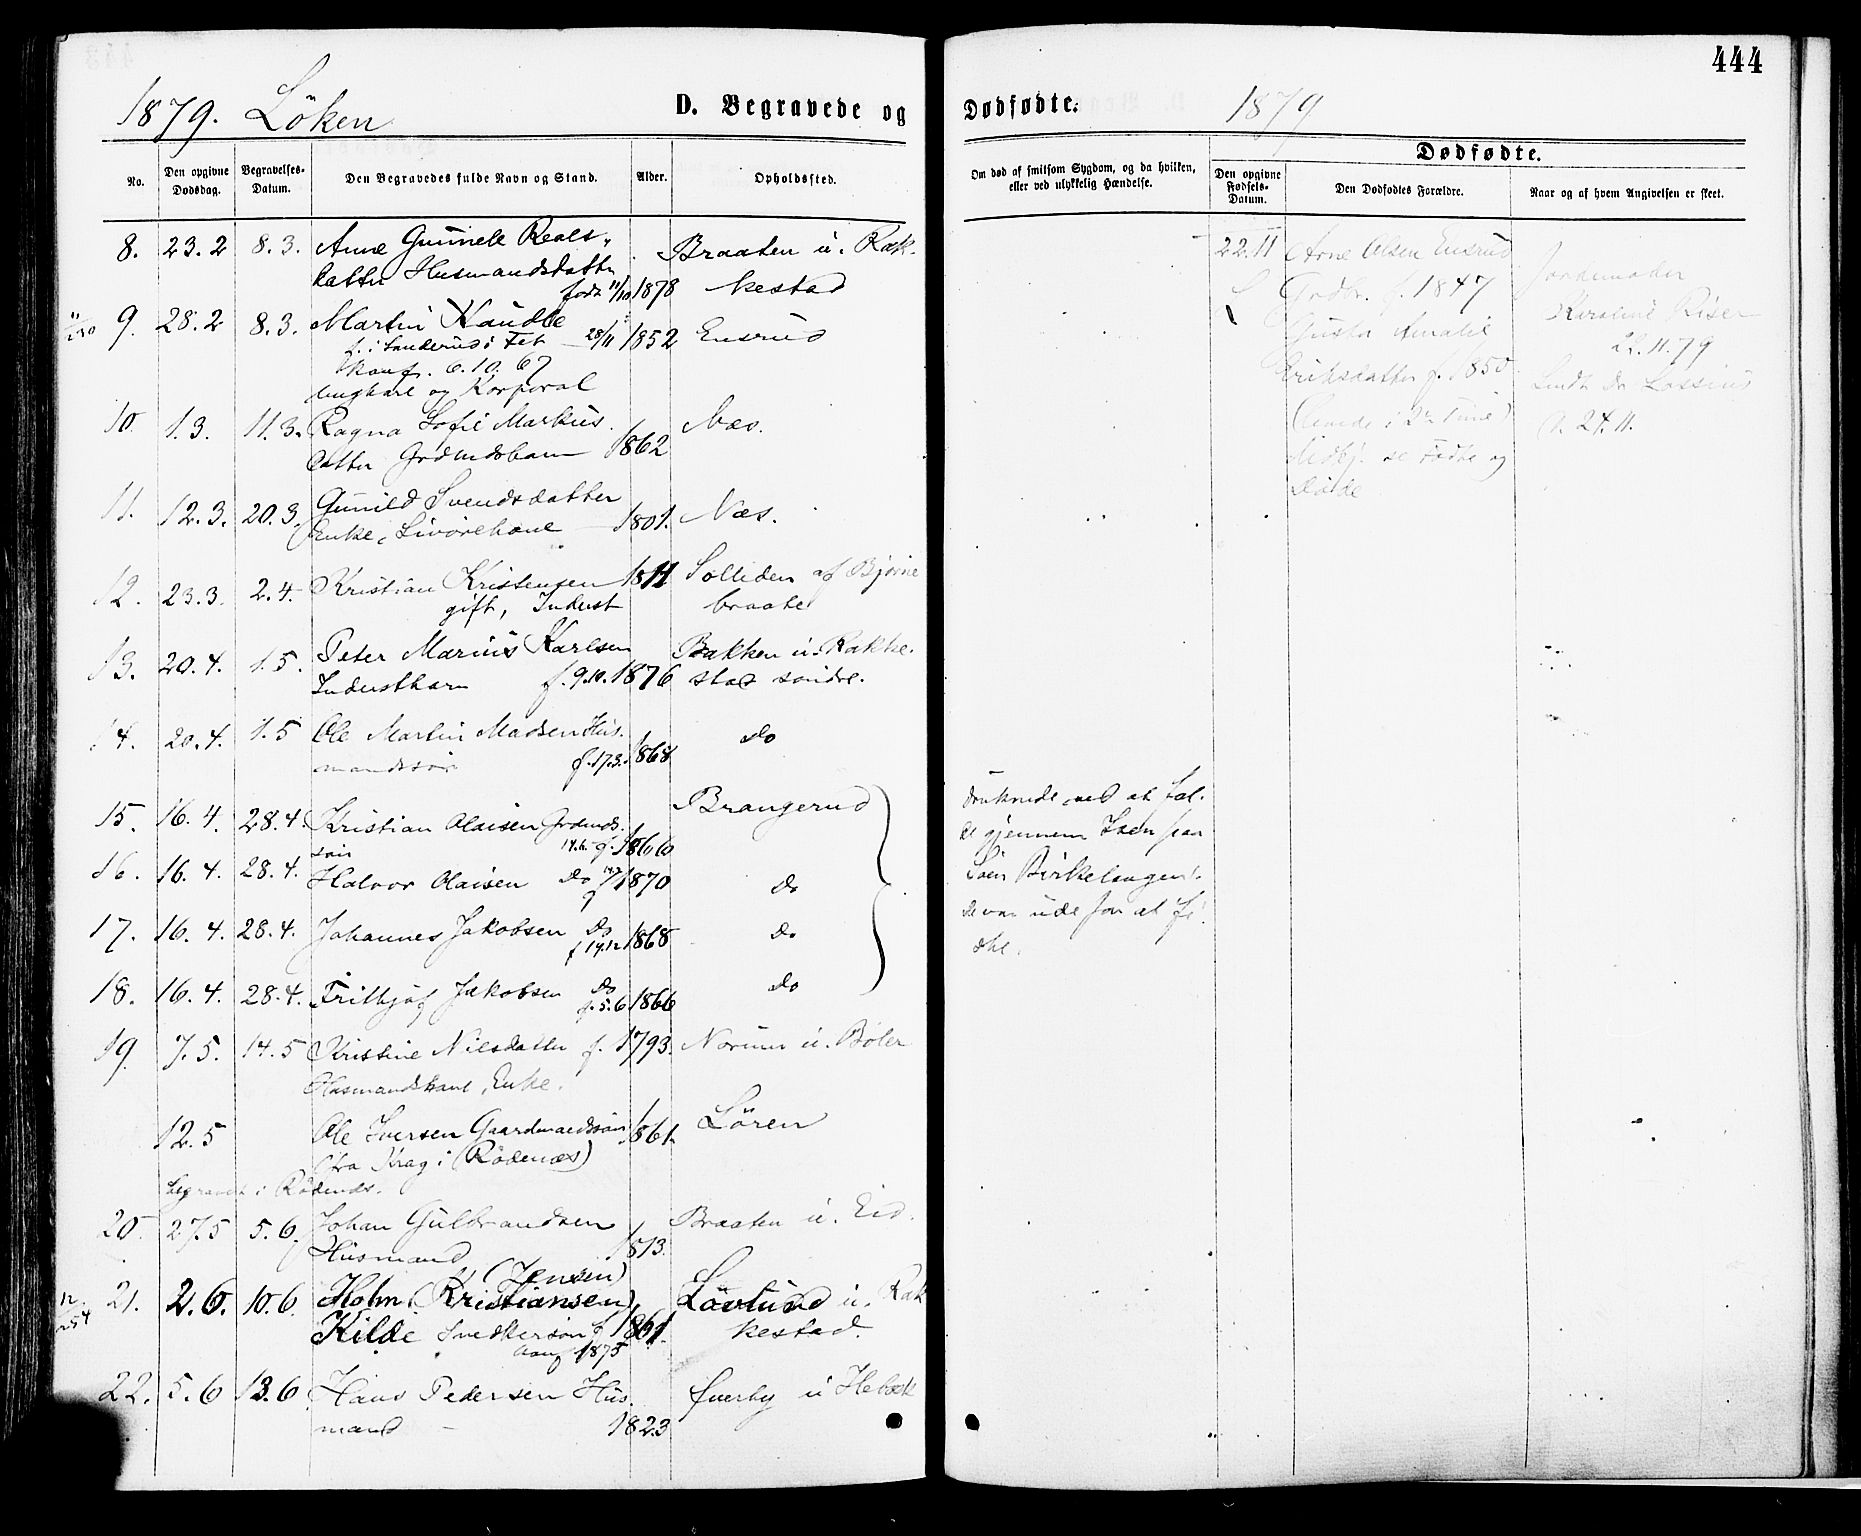 444
1879. Löken
D. Begravede og Dødfødte.
1879
No.
Den opgivne Dødsdag.
Begravelses-Datum.
Den Begravedes fulde Navn og Stand.
Alder.
Opholdssted.
Om død af smitsom Sygdom, og da hvilken, eller ved ulykkelig Hændelse.
Dødfødte.
Den opgivne Fødsels-Datum.
Den Dødfødtes Forældre.
Naar og af hvem Angivelsen er skeet.
8. 23.2 8.3. Anne Gunnele Braaten u. Rak-
datter Husmandsdatter
født 11/10 1878 kestad
9. 28.2 8.3. Martin Kaudle
f. i Sanderud i Fet 28/11 1852 Ensrud
Konf. 6.10.67
ungkarl og Korporal
10. 1.3. 11.3. Ragna Sofie Markus Næs.
datter Grdmdsbarn 1862
11. 12.3. 20.3. Gunild Svendsdatter
Enke, Livørekone 1801. Næs.
12. 23.3. 2.4. Kristian Kristensen 1811 Solliden af Bjørne
gift, Inderst braate
13. 20.4. 1.5. Peter Marius Karlsen Bakken u. Rakke-
Inderstbarn f. 9.10. 1876 stad søndre.
14. 20.4. 1.5 Ole Martin Madsen Hus- do
mandssøn f. 17.3. 1868
15. 16.4. 28.4. Kristian Olaisen Grdmds. Brangerud
søn 14.6. 1866
16. 16.4. 28.4. Halvor Olaisen do 1870 do
17. 16.4. 28.4. Johannes Jakobsen do f 14.12 1868 do
18. 16.4. 28.4. Frithjof Jakobsen do f. 5.6 1866 do
19. 7.5. 14.5 Kristine Nilsdatter f. 1793. Normen u. Böler
Husmandskone, Enke.
12.5 Ole Iversen Gaardmandssøn 1861. Lören
fra Krag i (Rödenæs)
begravet i Rödenæs.
20 27.5 5.6. Johan Gulbrandsen Braaten u. Eid.
Husmand 1813.
(Jensen)
21. 2.6. 10.6 Holm (Kristiansen) Lövlund u. Rak
Kilde Snedkersøn f. 1861. kestad.
1875
22. 5.6 13.6 Hans Pedersen Hus- Huerby u Hebæk
mand 1823
druknede ved at fal-
de gjennem Isen paa
Søen Birkelangen.
de var ude for at fi-
ske.
22.11 Arne Olsen Ensrud
Grdbr. f. 1847
Gusta Amalie
Eriksdatter f. 1850
(levede i 2de Time)
se Fødte og
Døde
Jordemoder
Karoline Riser
22.11.79
Lendt Dr Lossius
d. 24.11.